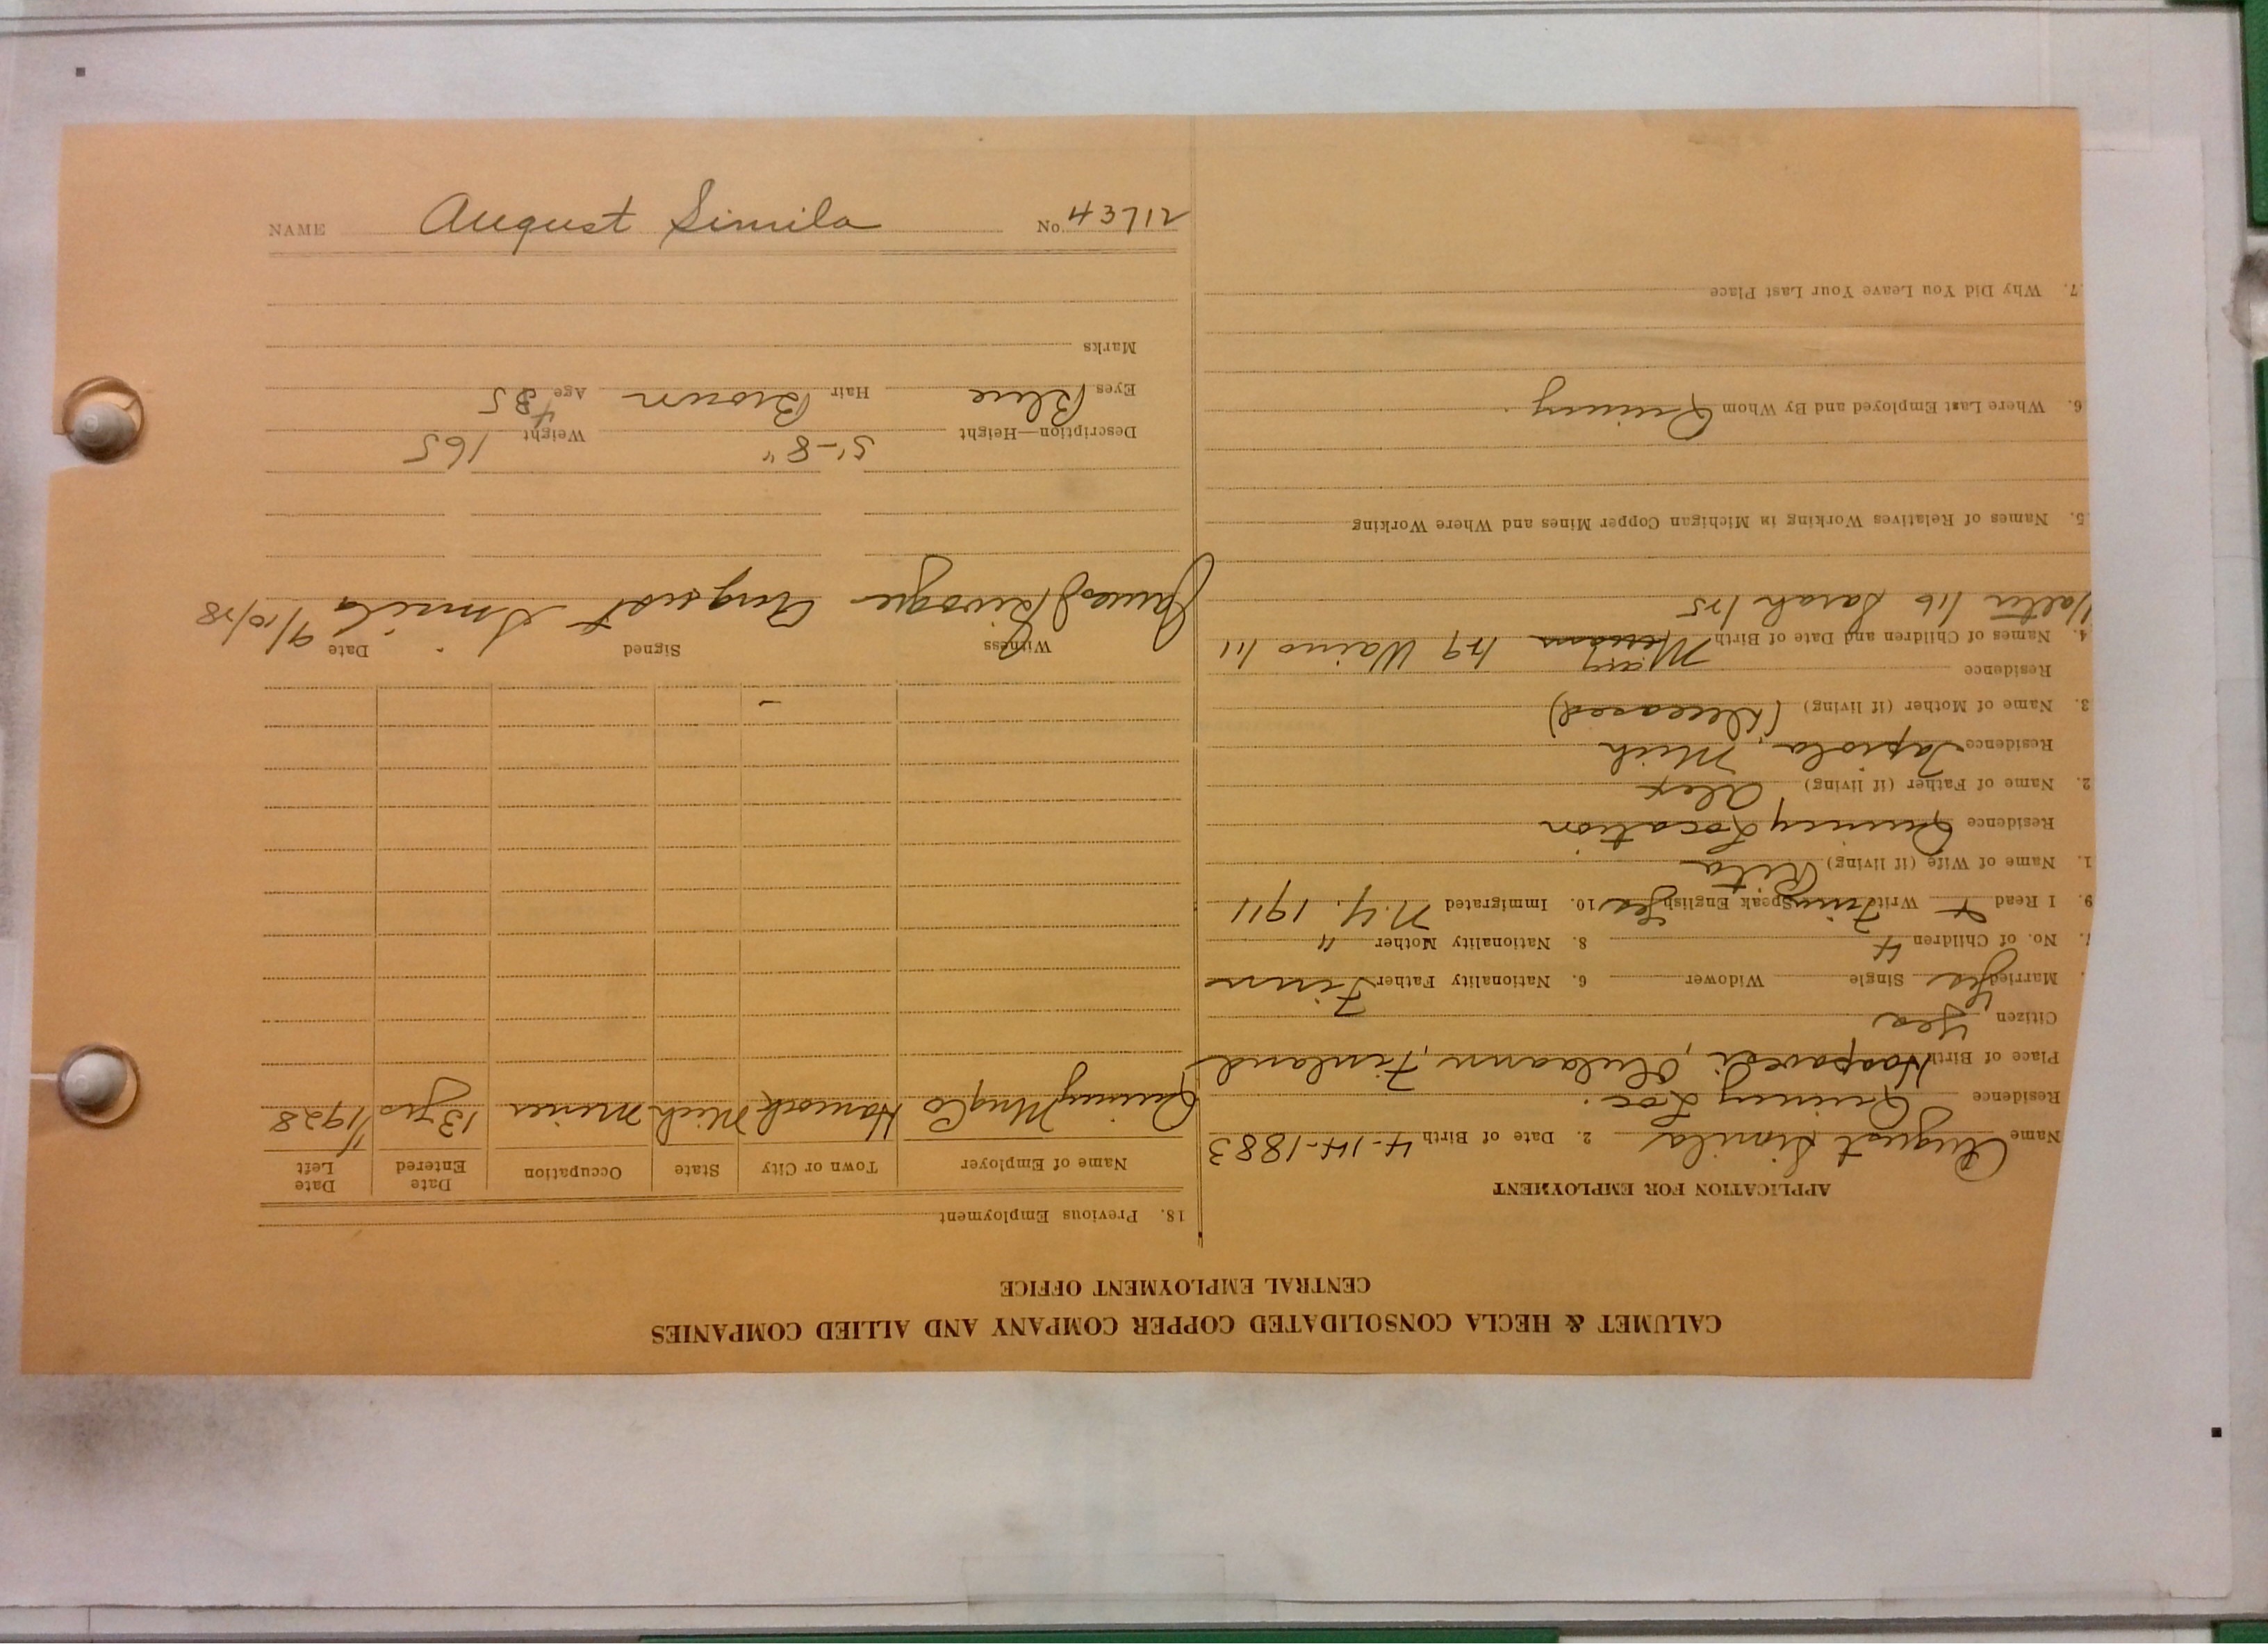 CALUMET & HECLA CONSOLIDATED COPPER COMPANY AND ALLIED COMPANIES
CENTRAL EMPLOYMENT OFFICE
APPLICATION FOR EMPLOYMENT
Name August Simila 2. Date of Birth 4-14-1883
Residence Quincy Loc.
Place of Birth Haapavesi, Oulaann, Finland
Citizen Yes
Married Yes Single Widower 6. Nationality Father Finn
7. No. of Children 4 8. Nationality Mother "
9. I Read Write Finn Speak English Yes 10. Immigrated N.Y. 1911
1. Name of Wife (if living) Rita
Residence Quincy Location
2. Name of Father (if living) Alex
Residence Tapiola, Mich
3. Name of Mother (if living) (Deceased)
Residence
4. Names of Children and Date of Birth Mary 1/29 Waino 1/11
Valter 1/6 Sarah 1/25
5. Names of Relatives Working in Michigan Copper Mines and Where Working
6. Where Last Employed and By Whom Quincy
7. Why Did You Leave Your Last Place
18. Previous Employment
Name of Employer Town or City State Occupation Date Entered Date Left
Quincy Mng Co Hancock Mich Miner 13 yrs 1928
Witness Signed Date
August Simila 9/10/28
Description—Height 5'-8" Weight 165
Eyes Blue Hair Brown Age 45
Marks
NAME August Simila No. 43712